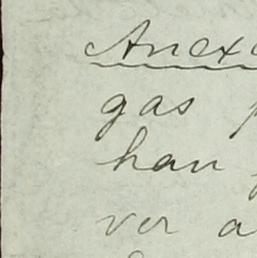 Anexo
gas
han
ver a